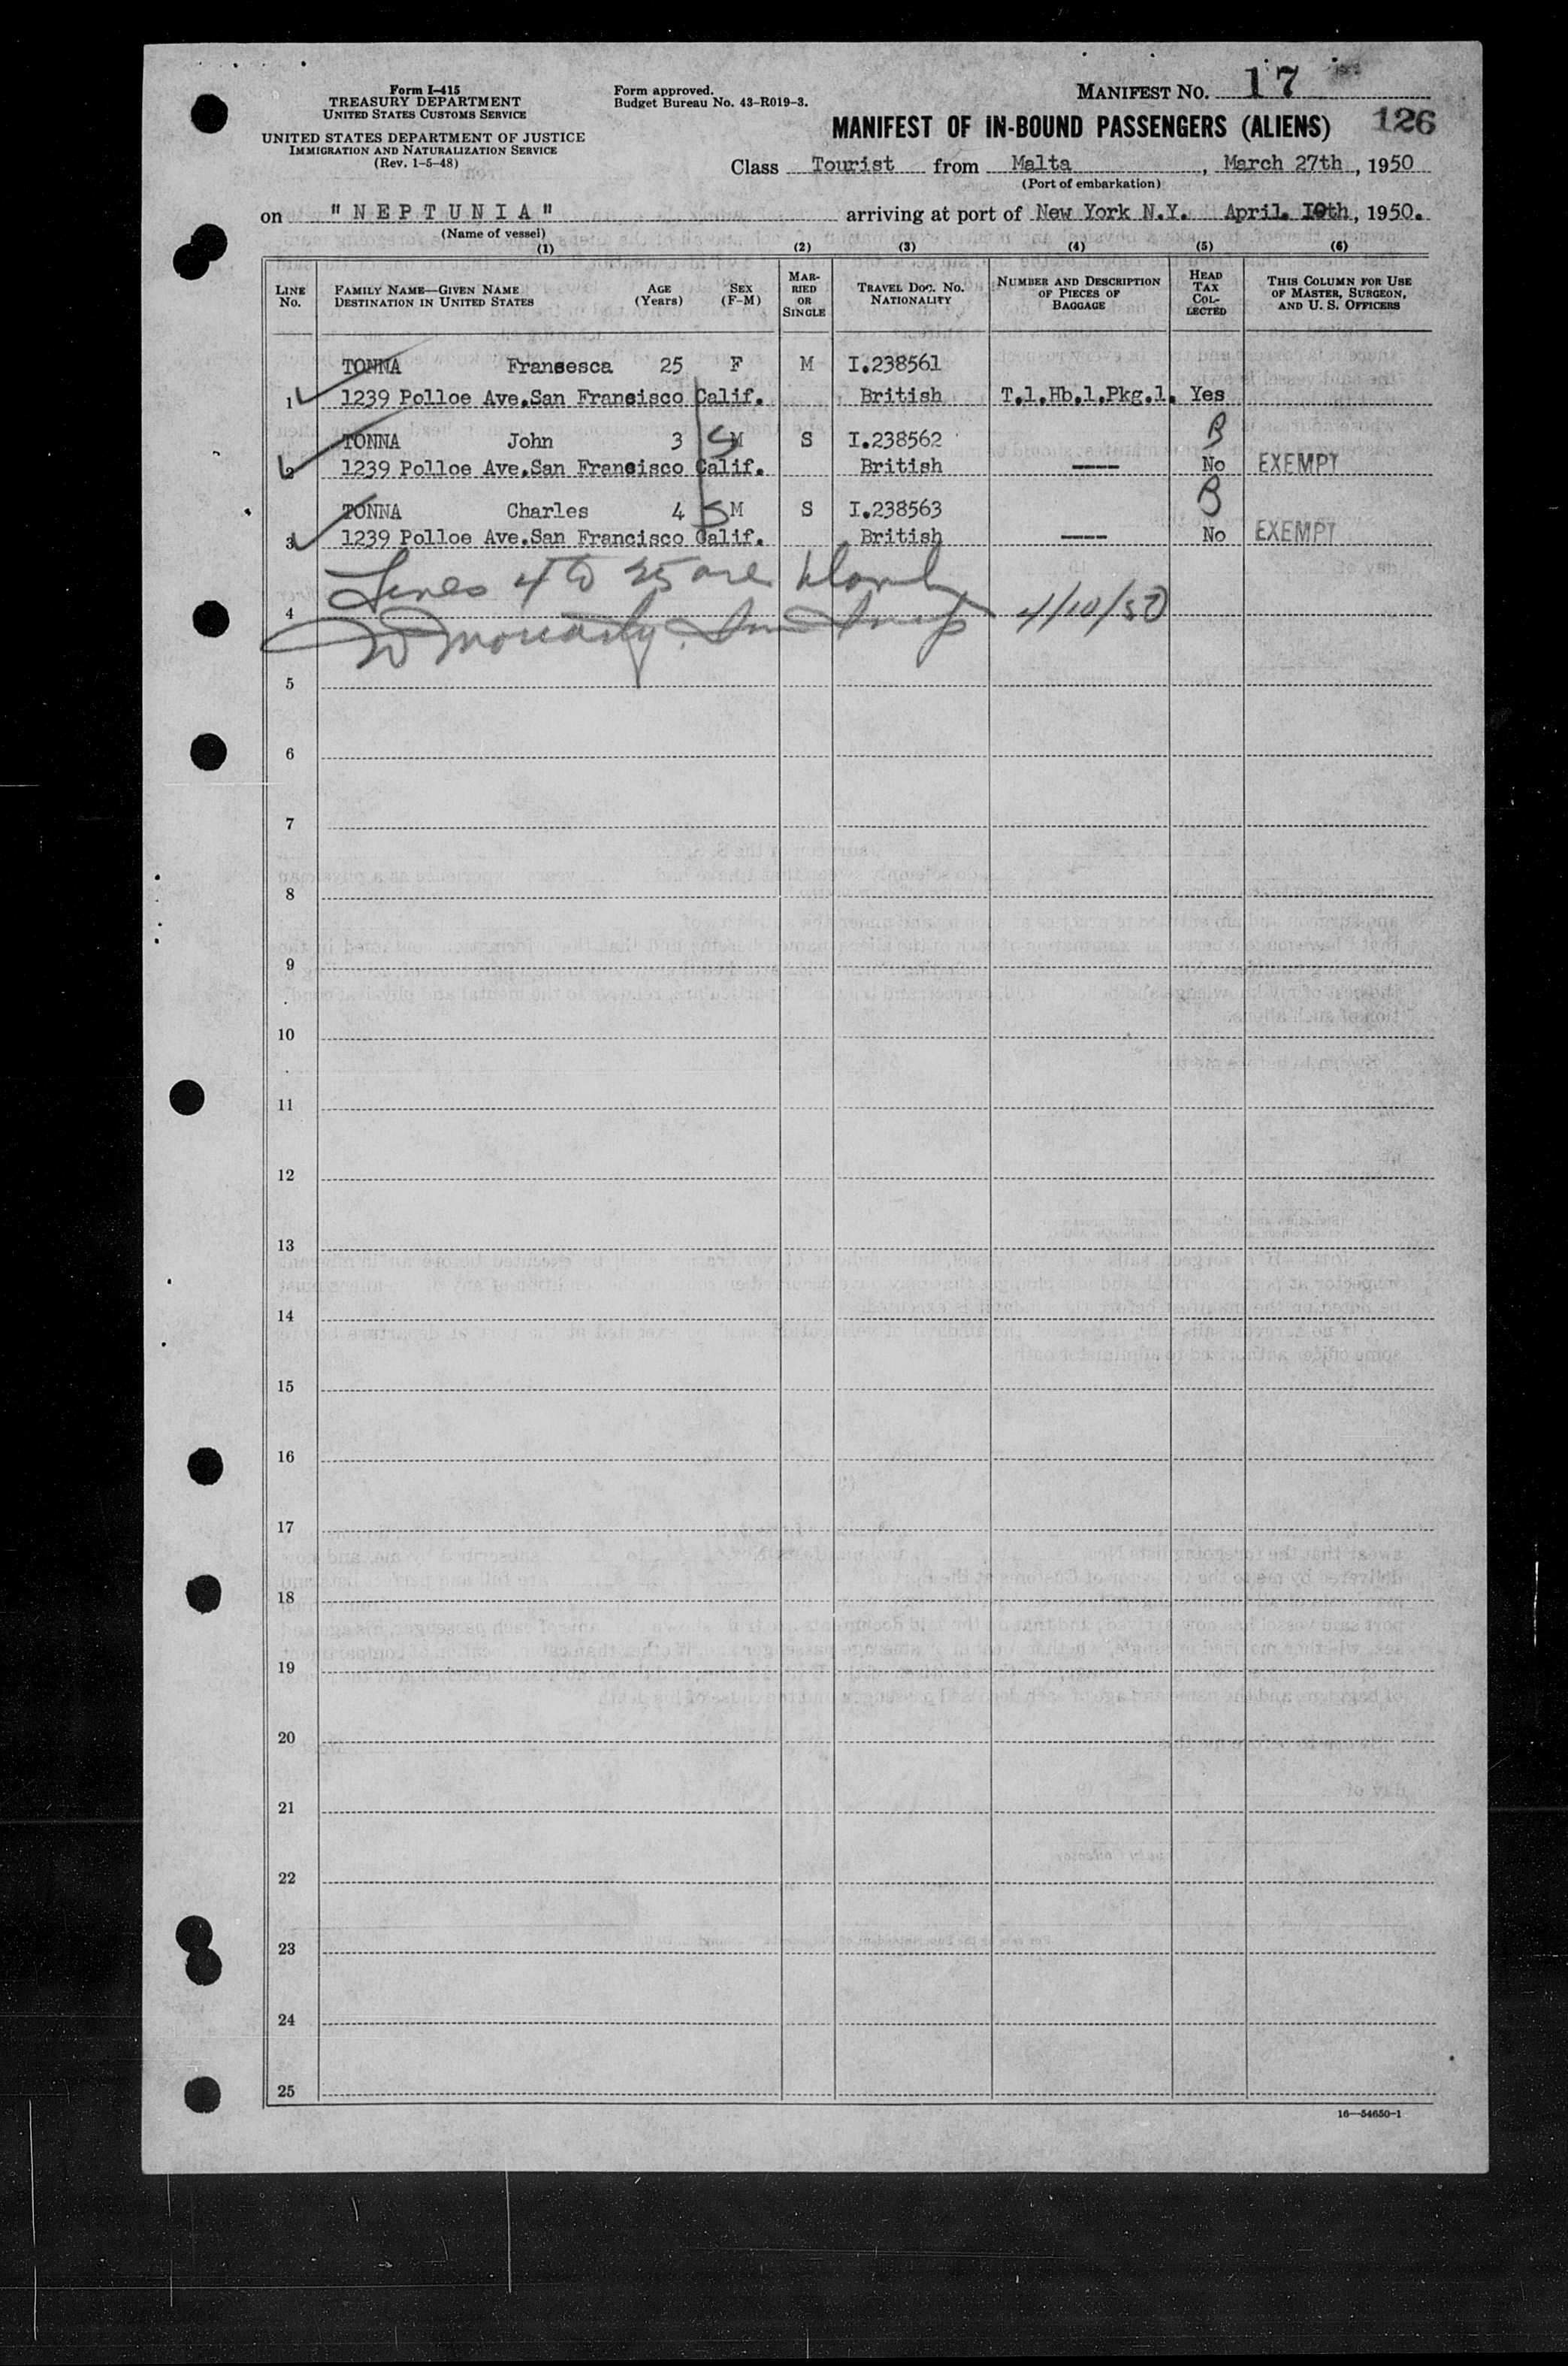 Form I-415
TREASURY DEPARTMENT
UNITED STATES CUSTOMS SERVICE
UNITED STATES DEPARTMENT OF JUSTICE
IMMIGRATION AND NATURALIZATION SERVICE
(Rev. 1-5-48)
Form approved.
Budget Bureau No. 43-R019-3.
MANIFEST NO. 17
126
MANIFEST OF IN-BOUND PASSENGERS (ALIENS)
Class Tourist from Malta, March 27th, 1950
(Port of embarkation)
on "NEPTUNIA" arriving at port of New York N.Y. April. 10th, 1950.
(Name of vessel)
(1) (2) (3) (4) (5) (6)
LINE No. FAMILY NAME—GIVEN NAME DESTINATION IN UNITED STATES AGE (Years) SEX (F-M) MARRIED OR SINGLE TRAVEL DOC. NO. NATIONALITY NUMBER AND DESCRIPTION OF PIECES OF BAGGAGE HEAD TAX COLLECTED THIS COLUMN FOR USE OF MASTER, SURGEON, AND U. S. OFFICERS
TONNA Fransesca 25 F M I.238561
1 1239 Polloe Ave.San Francisco Calif. British T.1.Hb.1.Pkg.1. Yes
TONNA John 3 M S I.238562 B
2 1239 Polloe Ave.San Francisco Calif. British ---- No EXEMPT
TONNA Charles 4 M S I.238563 B
3 1239 Polloe Ave.San Francisco Calif. British ---- No EXEMPT
Lines 4 to 25 are blank
4 W Moriarty 4/10/50
5
6
7
8
9
10
11
12
13
14
15
16
17
18
19
20
21
22
23
24
25
16—54650-1